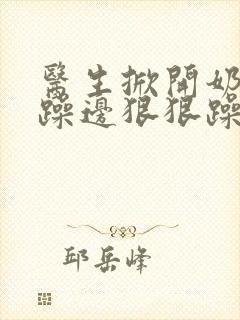 醫生掀開奶
躁邊狠狠躁
邱岳峰